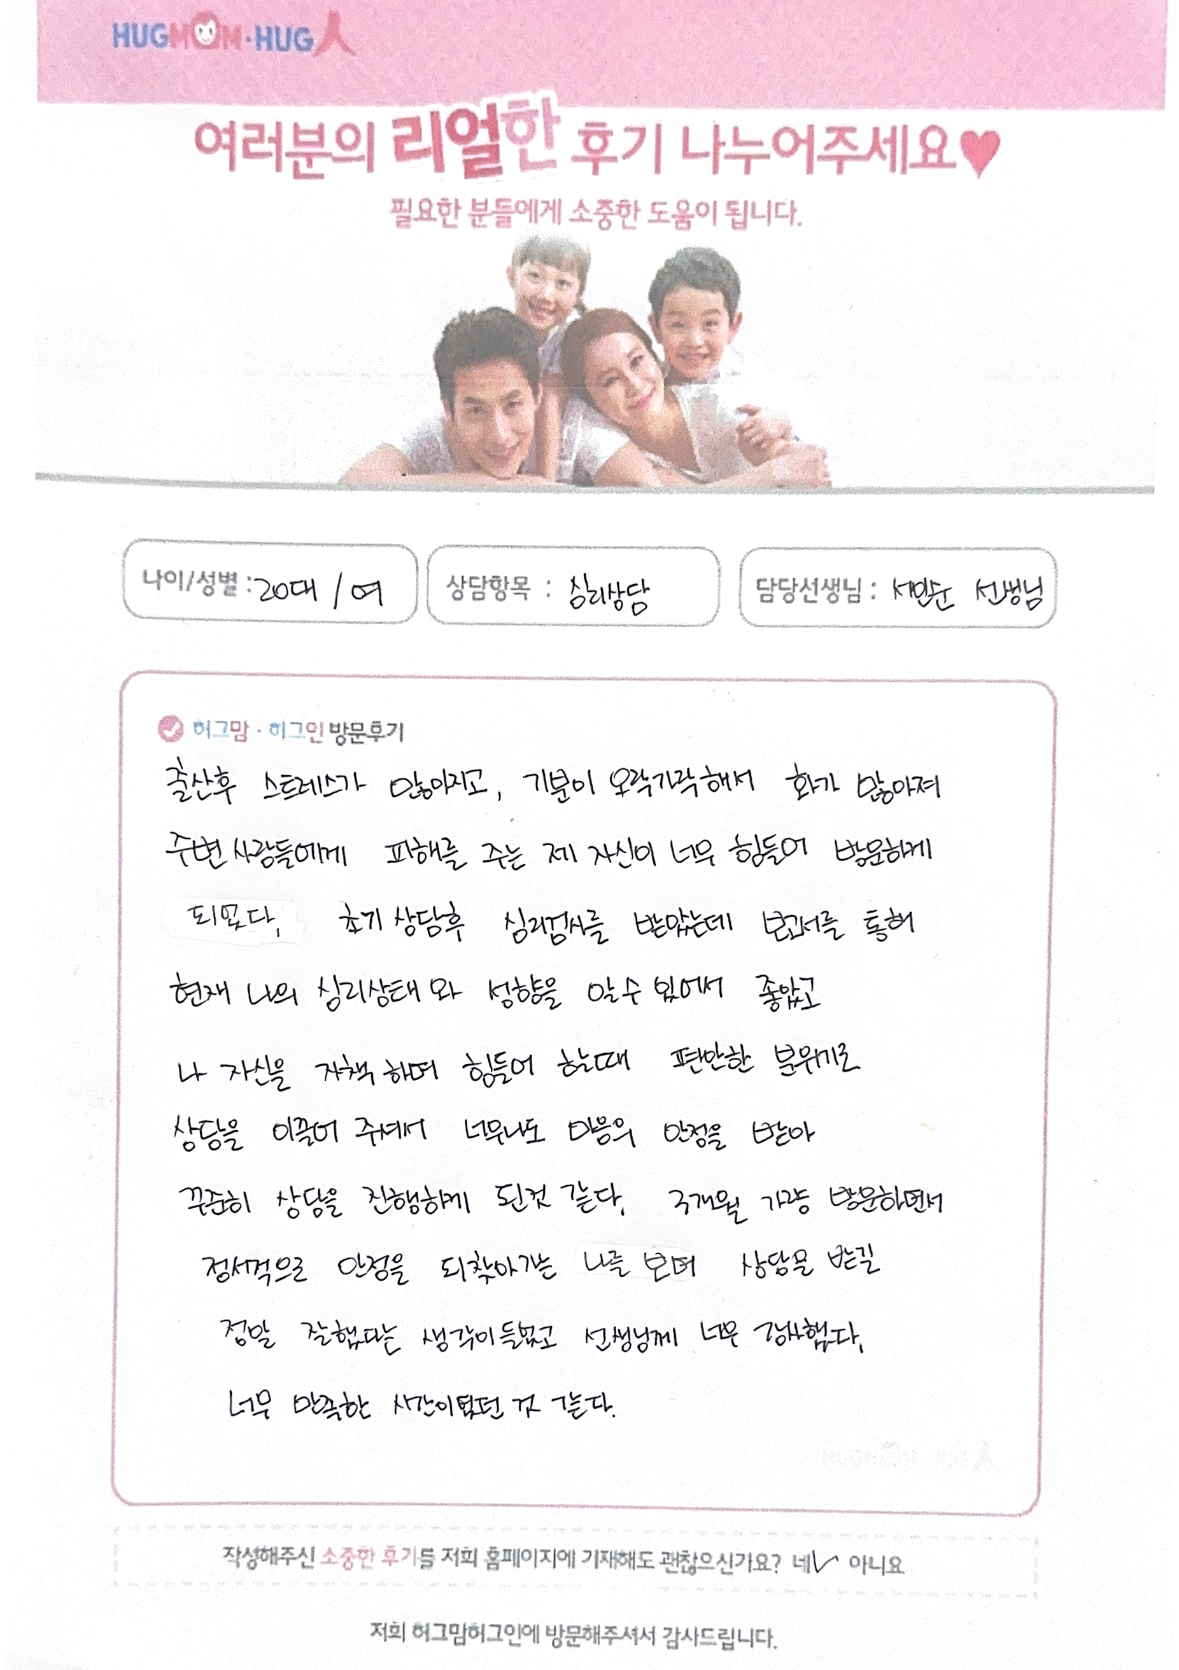 HUGMOM·HUG人
여러분의 리얼한 후기 나누어주세요♥
필요한 분들에게 소중한 도움이 됩니다.
나이/성별 : 20대 / 여
상담항목 : 심리상담
담당선생님 : 서민순 선생님
허그맘·허그인 방문후기
출산후 스트레스가 많아지고, 기분이 오락가락해서 화가 많아져
주변 사람들에게 피해를 주는 제 자신이 너무 힘들어 방문하게
되었다. 초기 상담후 심리검사를 받았는데 보고서를 통해
현재 나의 심리상태와 성향을 알수 있어서 좋았고
나 자신을 자책하며 힘들어 하는때 편안한 분위기로
상담을 이끌어 주셔서 너무나도 마음의 안정을 받아
꾸준히 상담을 진행하게 된것 같다. 3개월 가량 방문하면서
정서적으로 안정을 되찾아가는 나를 보며 상담을 받길
정말 잘했다는 생각이 들었고 선생님께 너무 감사했다.
너무 만족한 시간이 되었던 것 같다.
작성해주신 소중한 후기를 저희 홈페이지에 기재해도 괜찮으신가요? 네✓ 아니요
저희 허그맘허그인에 방문해주셔서 감사드립니다.